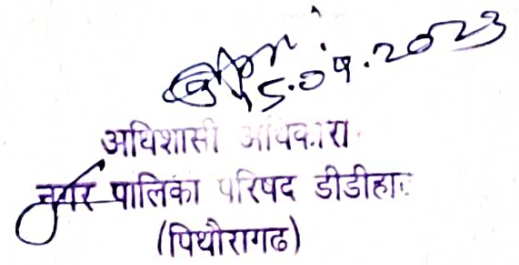 5.09.2023
अधिशासी अधिकारी
नगर पालिका परिषद डीडीहाट
(पिथौरागढ)